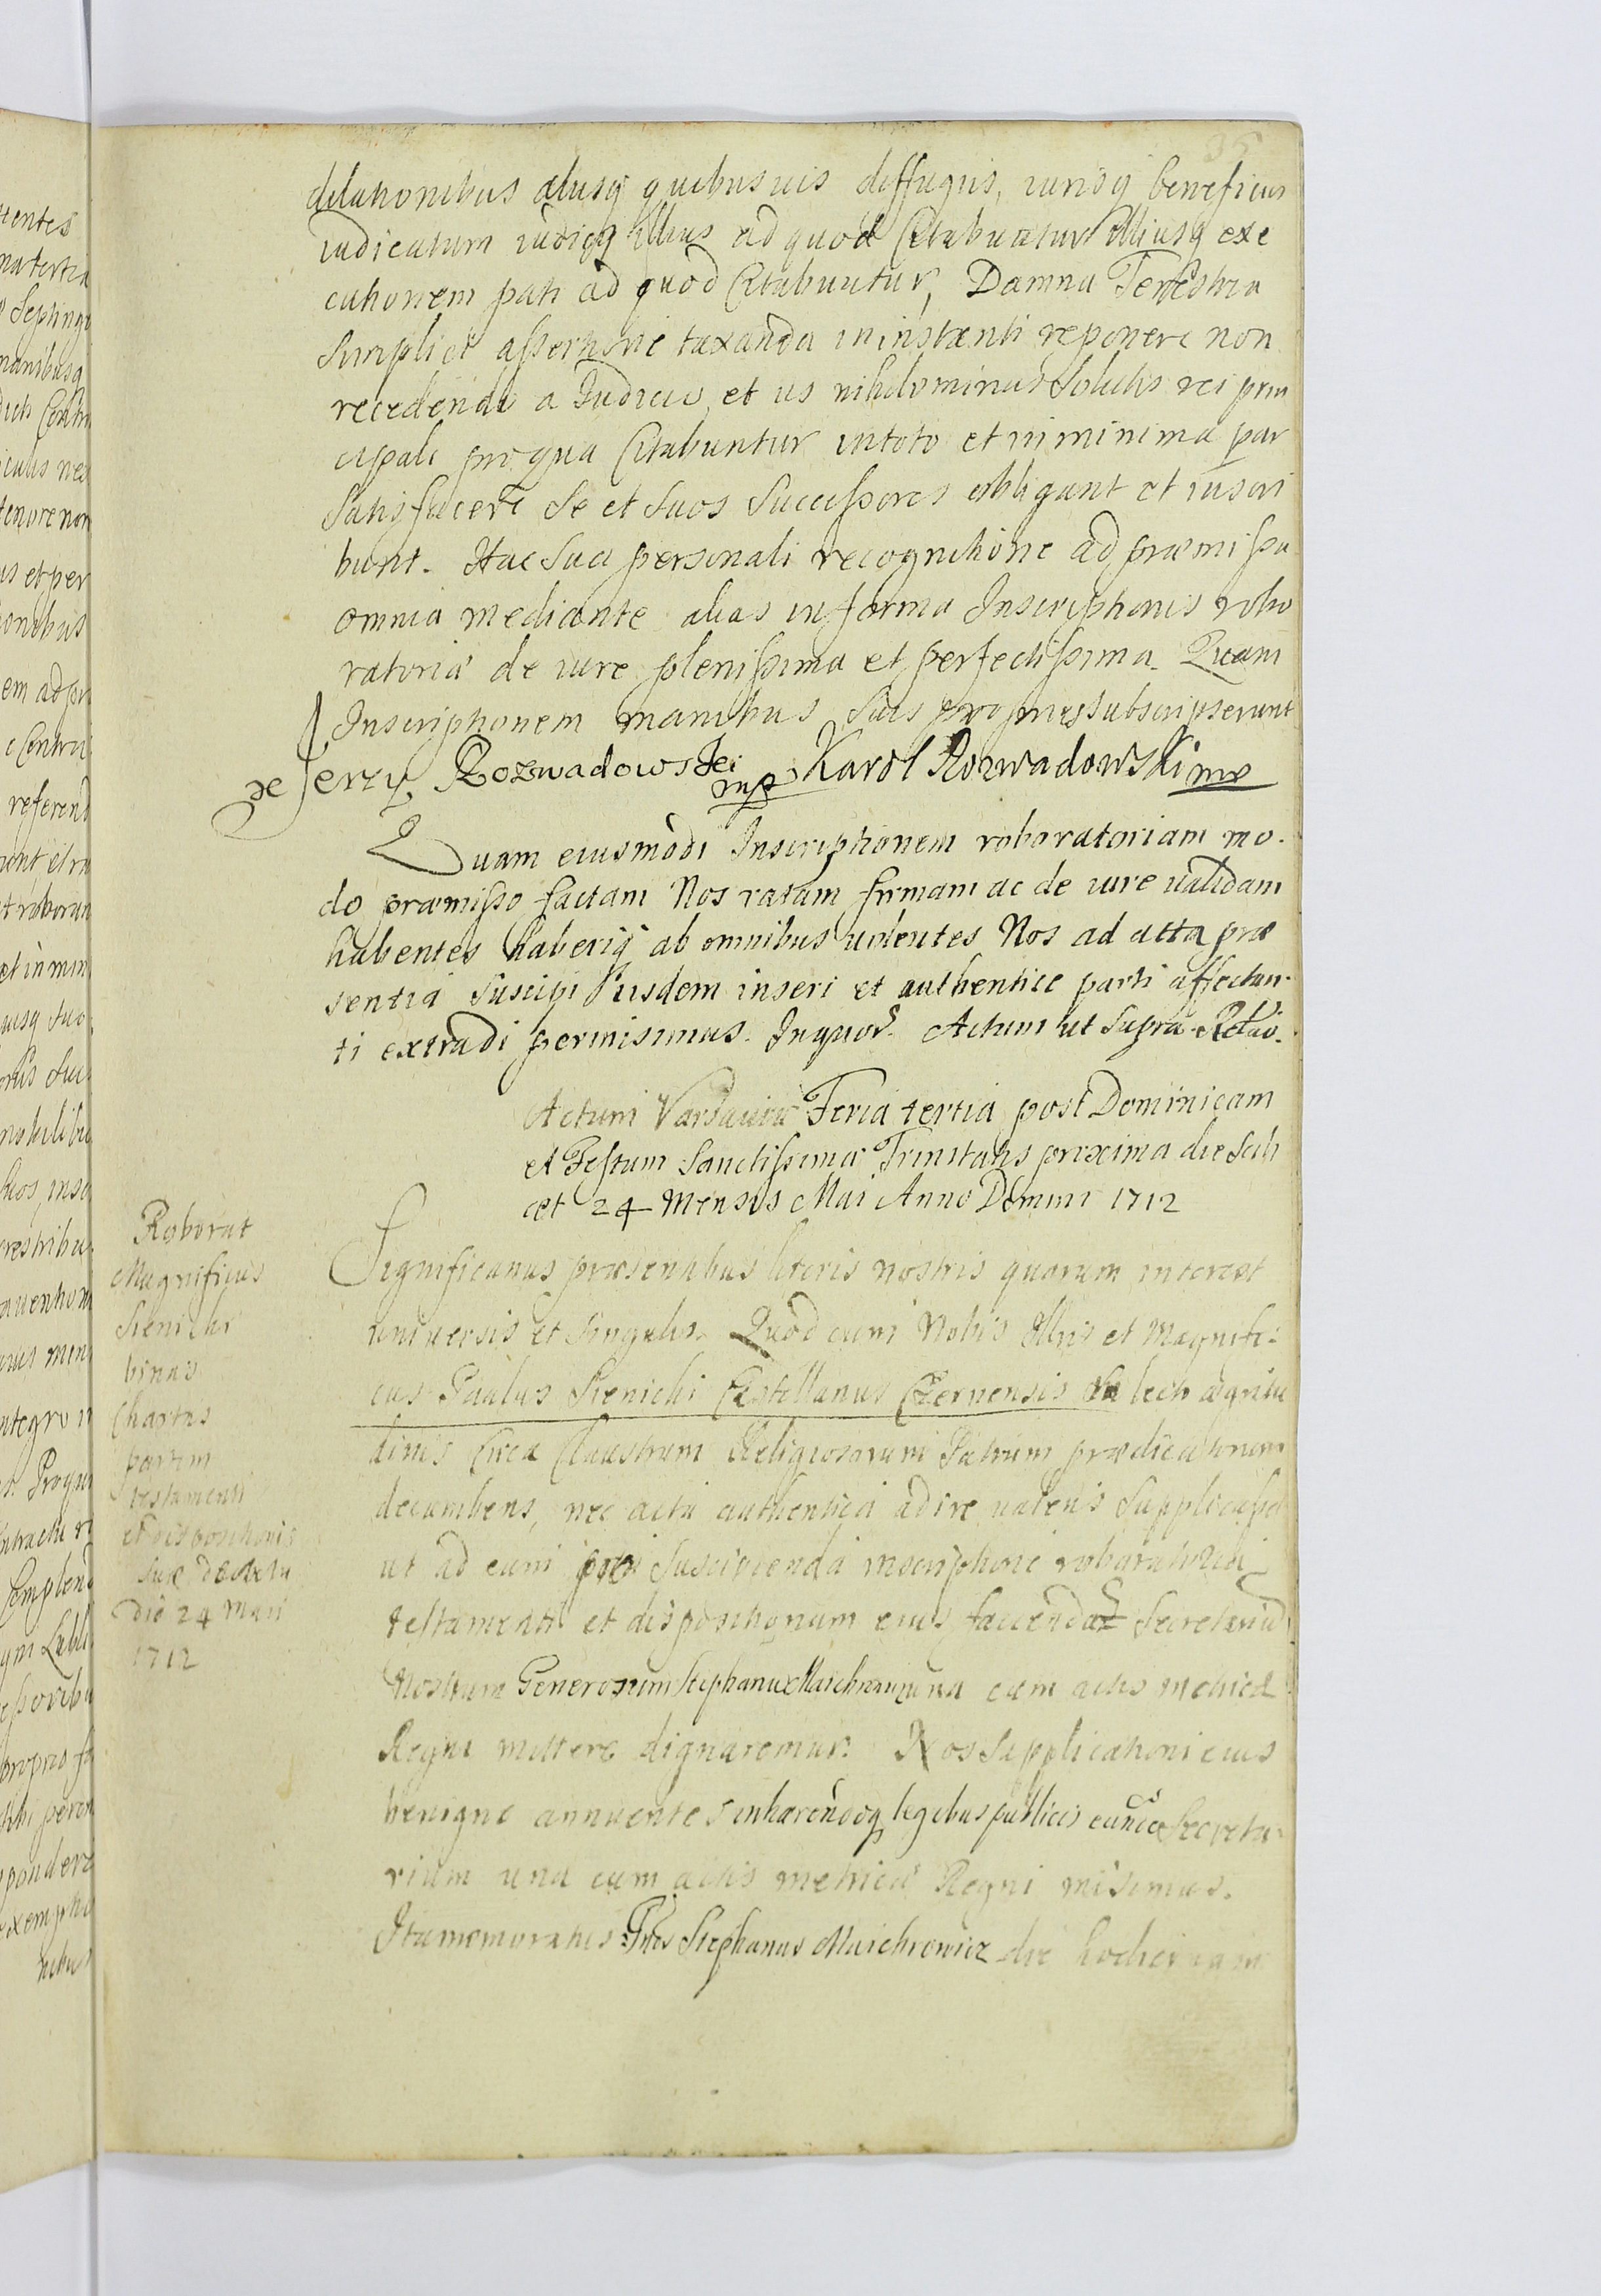 35
dilationibus alusq quibusuis diffugiis, iurisq beneficiis
iudicatum iudiciq illius ad quod Citabuntur illiusq exe
cutionem pati ad quod Citabuntur, Damna Terrestria
simplici assertione taxanda in instanti reponere non
recedendo a Iudicio et iis nihilominus solutis rei prin
cipali pro qua Citabuntur in toto et in minima par
satisfacere se et suos successores obligant et inscri
bunt. Hac sua personali recognitione ad præmissa
omnia mediante alias in forma Inscriptionis robo
ratoria de iure plenissima et perfectissima. Quam
Inscriptionem manibus suis propriis subscripserunt
Jerzy Rozwadowski mp Karol Rozwadowski mp
Quam eiusmodi Inscriptionem roboratoriam mo.
do præmisso factam Nos ratam firmam ac de iure ualidam
habentes haberiq ab omnibus uolentes Nos ad acta præ
sentia suscipi iisdem inseri et authentice parti affectan.
ti extradi permisimus. In quor. Actum ut supra
Actum Varsauiæ Feria tertia post Dominicam
et Festum Sanctissimæ Trinitatis proxima die scili
cet 24 Mensis Mai Anno Domini 1712
Roborat
Magnificus
Sienicki
binas
Chartas
partim
testamenti
et dispositionis
suæ
die 24 Maii
1712
Significamus præsentibus literis nostris quorum interest
uniuersis et singulis. Quod cum Nobis Illris et Magnifi:
cus Paulus Sienicki Castellanus Czernensis lecto ægritu
dinis Circa Claustrum Religiosorum Patrum prædicatorum
decumbens, nec acta authentica adire ualens supplicasset
ut ad eum pro suscipienda inscriptione roboratoria
testamenti et dispositionum eius facienda Secretariu
Nostrum Generosum Stephanu una cum actis metricæ
Regni mittere dignaremur. Nos supplicationi eius
benigne annuentes inhærendoq legibus publicis eundẽ Secreta-
rium una cum actis metricæ Regni misimus.
Ita memoratus Gnõs Stephanus Maichrowicz die hodierna in